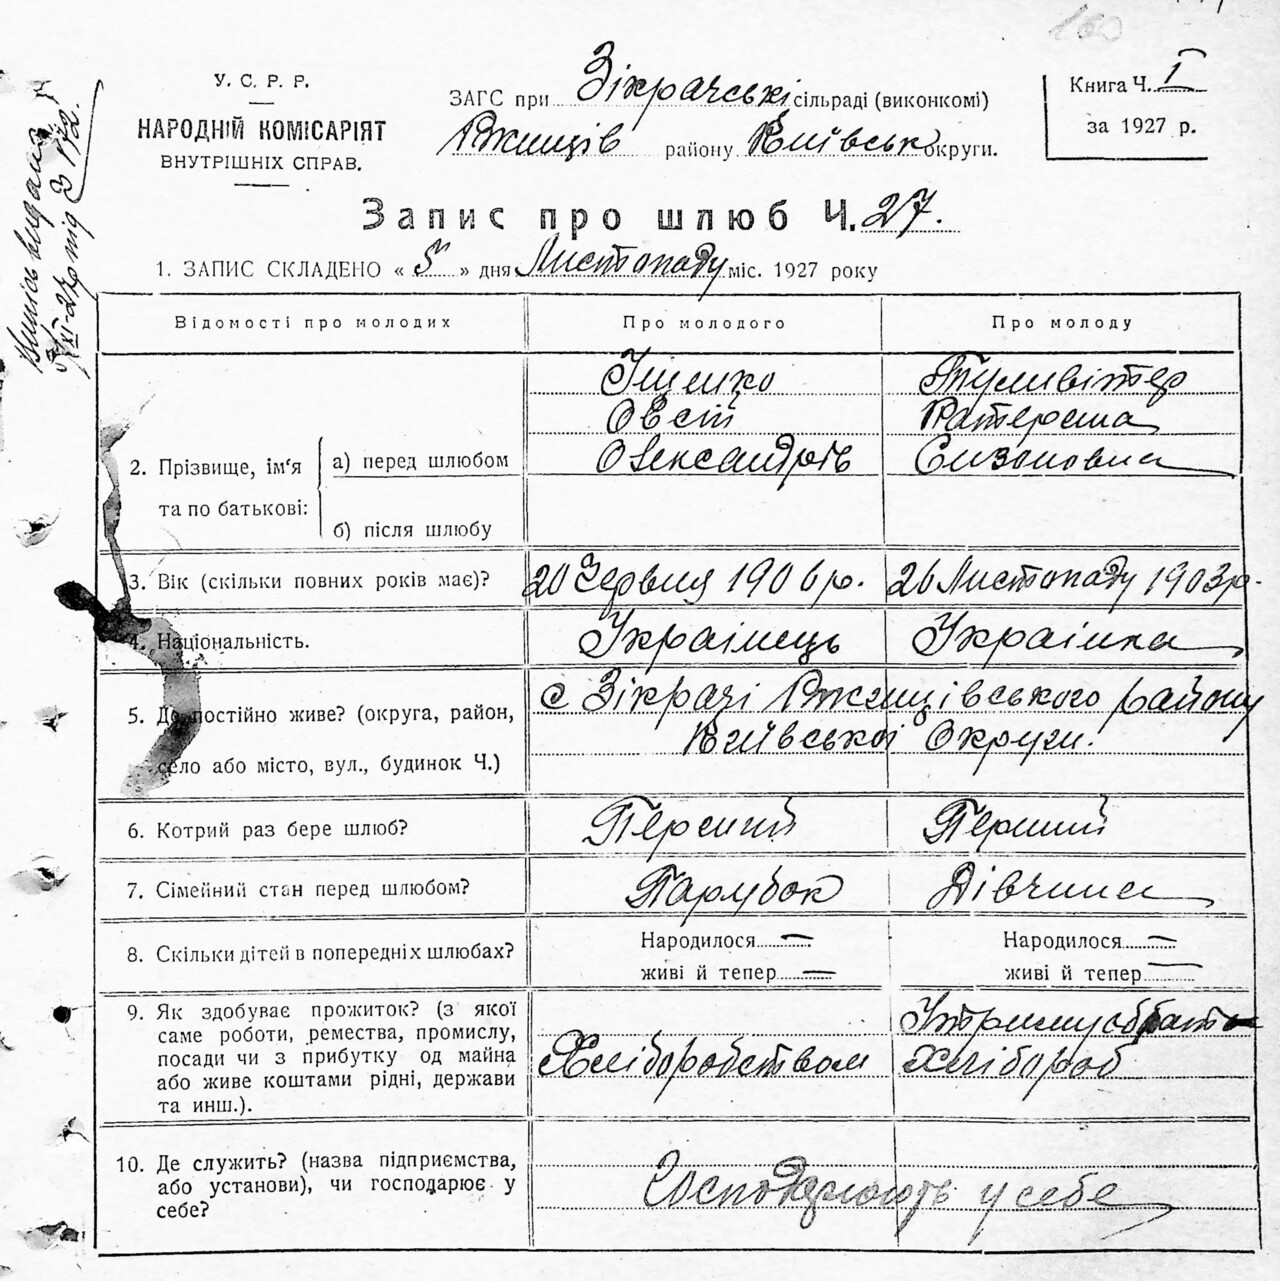 160
У. С. Р. Р.
НАРОДНІЙ КОМІСАРІЯТ
ВНУТРІШНІХ СПРАВ.
ЗАГС при Зікрачські сільраді (виконкомі)
Ржищів району Київськ округи.
Книга Ч. I
за 1927 р.
Запис про шлюб Ч. 27.
1. ЗАПИС СКЛАДЕНО « 5 » дня Листопаду міс. 1927 року
Відомості про молодих
Про молодого
Про молоду
2. Прізвище, ім'я
та по батькові:
а) перед шлюбом
б) після шлюбу
Іщенко
Овсій
Олександрів
Туливітер
Катерина
Сизоновна
3. Вік (скільки повних років має)?
20 Червня 1906 р.
26 Листопаду 1903 р.
4. Національність.
Українець
Українка
5. Де постійно живе? (округа, район,
село або місто, вул., будинок Ч.)
с Зікрачі Ржищівського району
Київської Округи.
6. Котрий раз бере шлюб?
Перший
Перший
7. Сімейний стан перед шлюбом?
Парубок
Дівчина
8. Скільки дітей в попередніх шлюбах?
Народилося —
живі й тепер —
Народилося —
живі й тепер —
9. Як здобуває прожиток? (з якої
саме роботи, ремества, промислу,
посади чи з прибутку од майна
або живе коштами рідні, держави
та инш.).
Хліборобством
Хлібороб
10. Де служить? (назва підприємства,
або установи), чи господарює у
себе?
Господарюють у себе